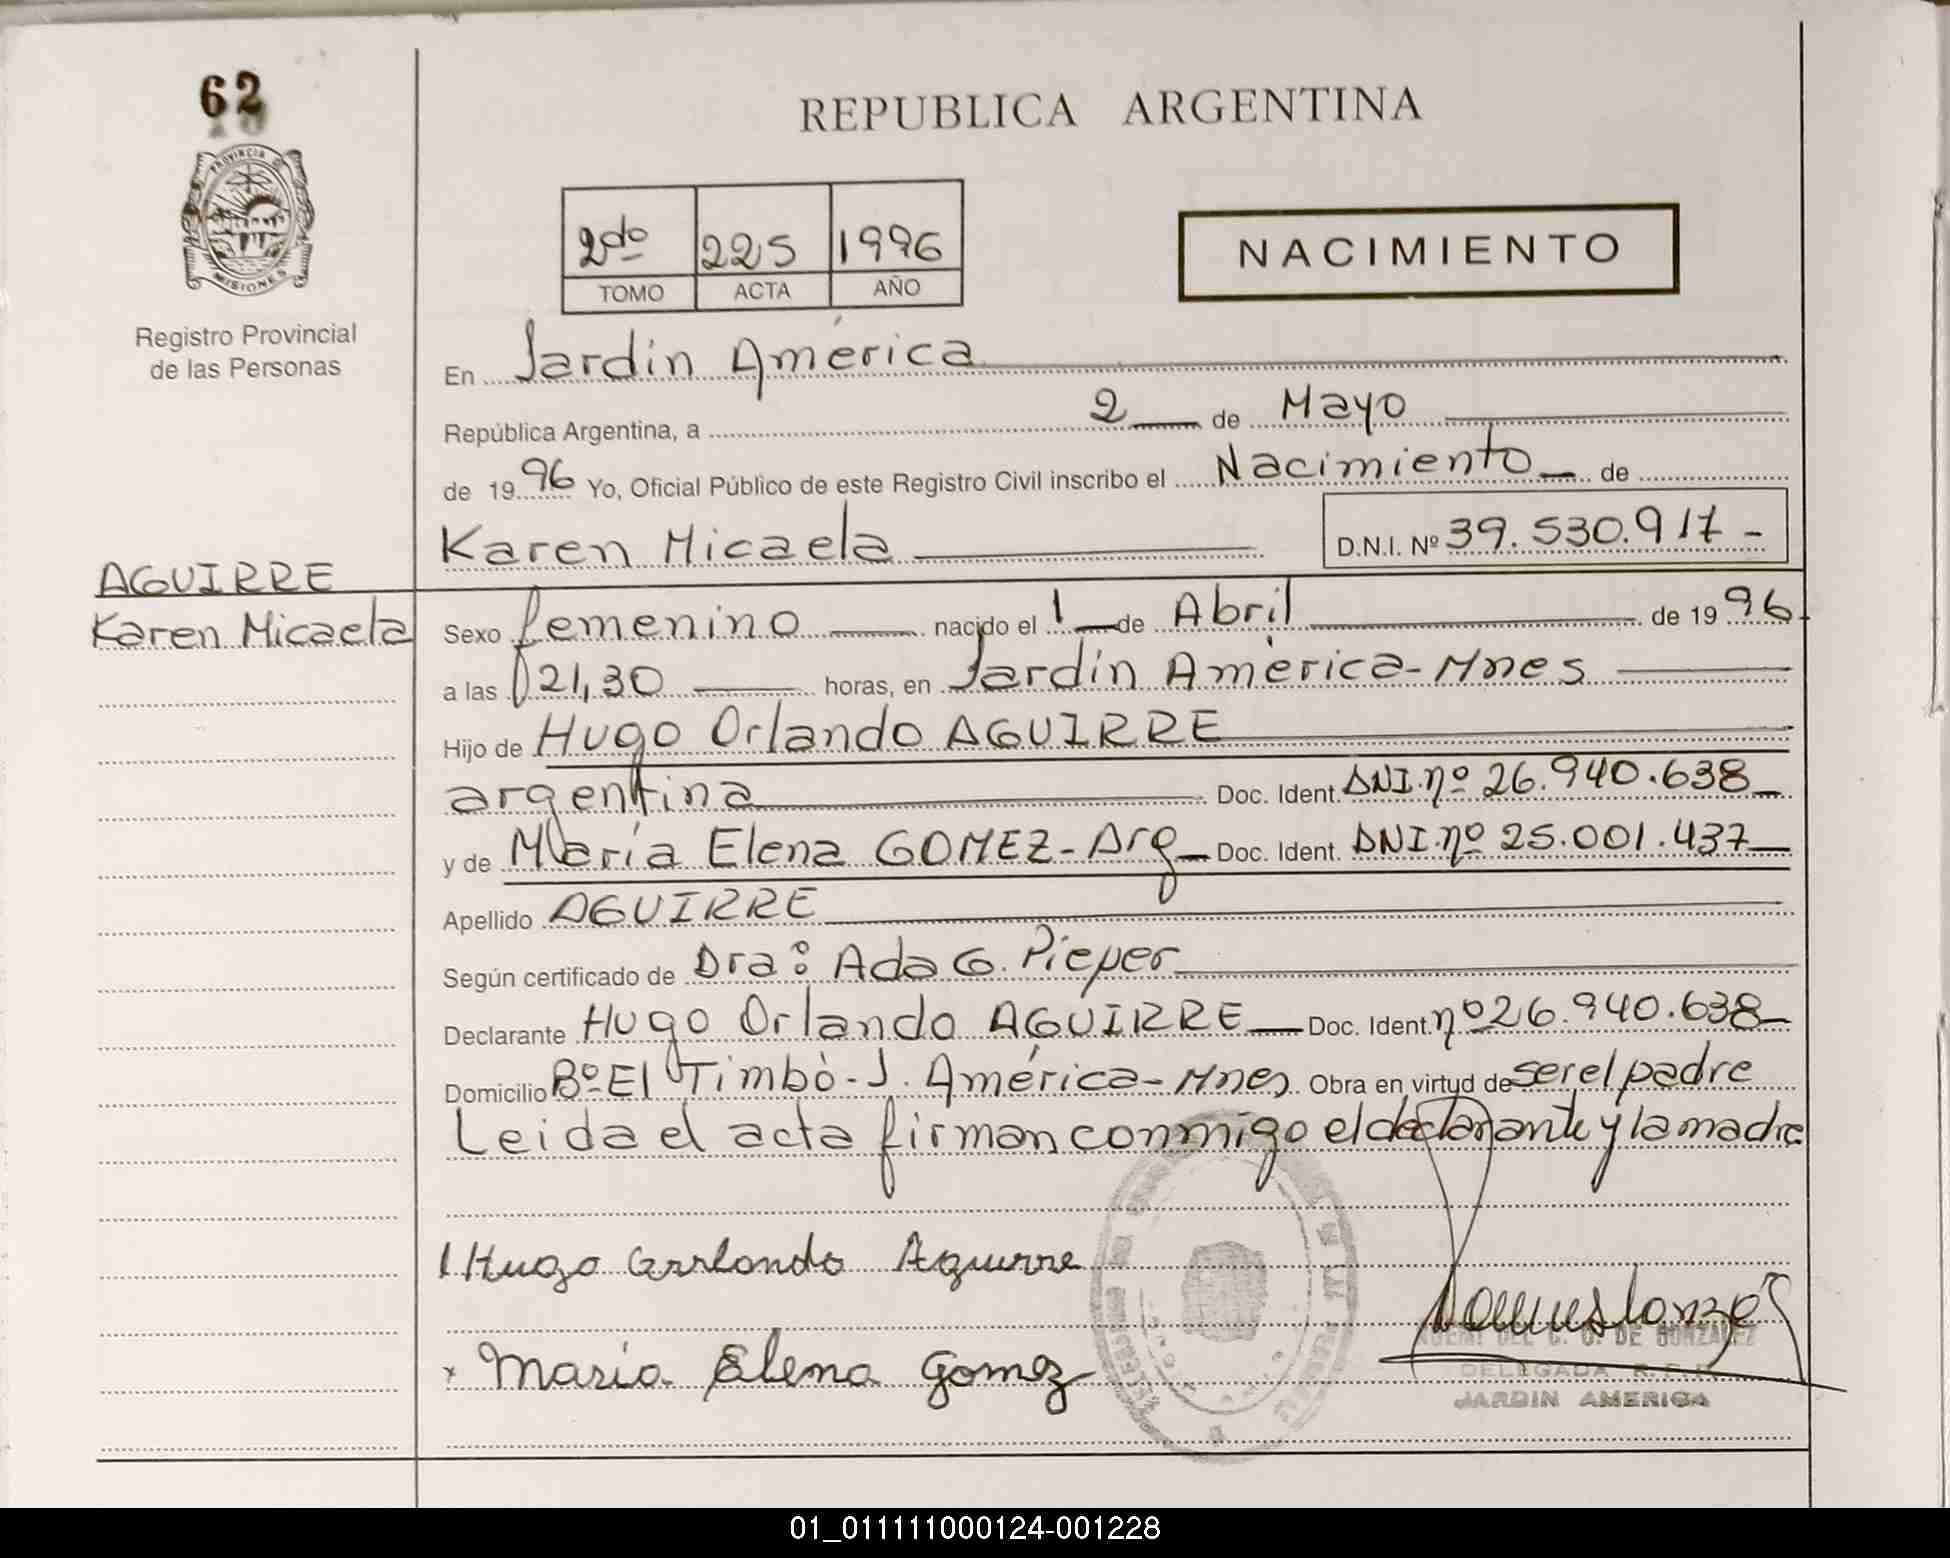 62
REPUBLICA ARGENTINA
PROVINCIA D
MISIONES
Registro Provincial
de las Personas
2do 225 1996
TOMO ACTA AÑO
NACIMIENTO
En Jardín América
República Argentina, a 2 de Mayo
de 1996 Yo, Oficial Público de este Registro Civil inscribo el Nacimiento de
Karen Micaela D.N.I. Nº 39.530.917-
AGUIRRE
Karen Micaela
Sexo femenino nacido el 1 de Abril de 1996
a las 21,30 horas, en Jardín América-Mnes
Hijo de Hugo Orlando AGUIRRE
argentina Doc. Ident. DNI.nº 26.940.638
y de María Elena GOMEZ-Arg Doc. Ident. DNI.nº 25.001.437
Apellido AGUIRRE
Según certificado de Dra: Ada G. Pieper
Declarante Hugo Orlando AGUIRRE Doc. Ident. nº 26.940.638
Domicilio Bº El Timbò-J. América-Mnes Obra en virtud de ser el padre
Leida el acta firman conmigo el declarante y la madre
Hugo Orlando Aguirre
x Maria Elena Gomez
DE GONZALEZ
DELEGADA R.P.P.
JARDIN AMERICA
01_011111000124-001228